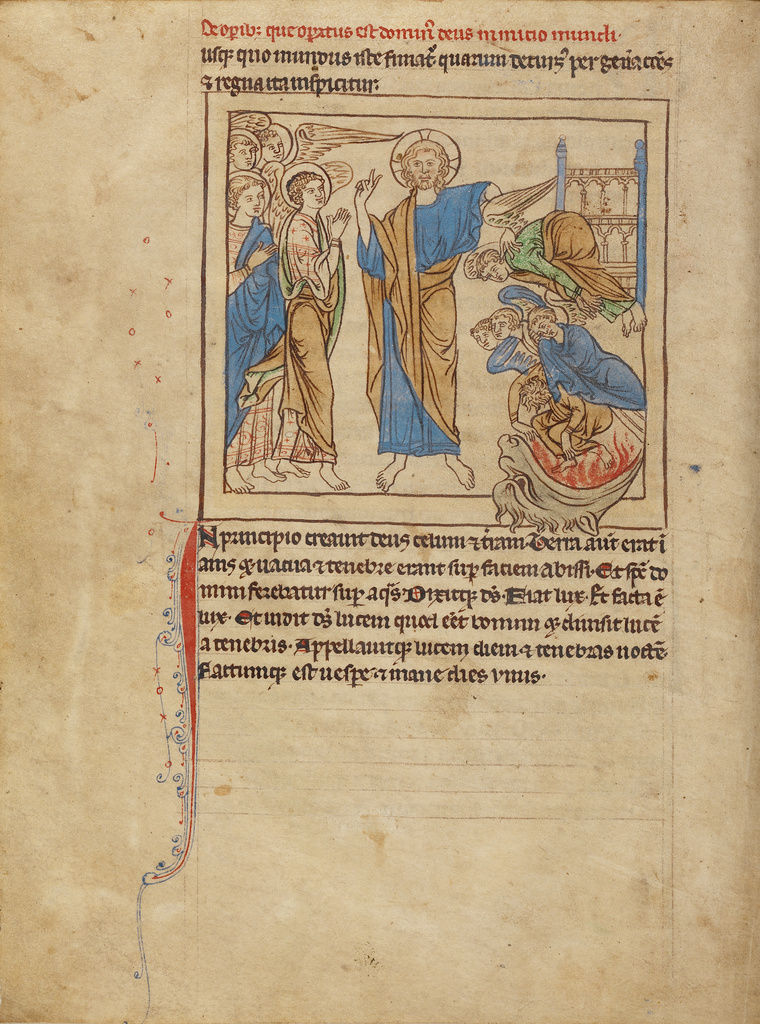 De opib; que opatus est dominꝰ deus in inicio mundi·
usq; quo mundus iste firmat quarum per gentes
⁊ regna ita inspicitur·
IN principio creauit deus celum ⁊ tram· Terra aut erat i
anis ⁊ uacua ⁊ tenebre erant sup faciem abissi· Et spc do
mini ferebatur sup aq̄s· Dixitq; ds· Fiat lux· Et facta ē
lux· Et uidit ds lucem quod eēt bonum ⁊ diuisit lucē
a tenebris· Appellauitq; lucem diem ⁊ tenebras noctē·
Factumq; est uespe ⁊ mane dies vnus·